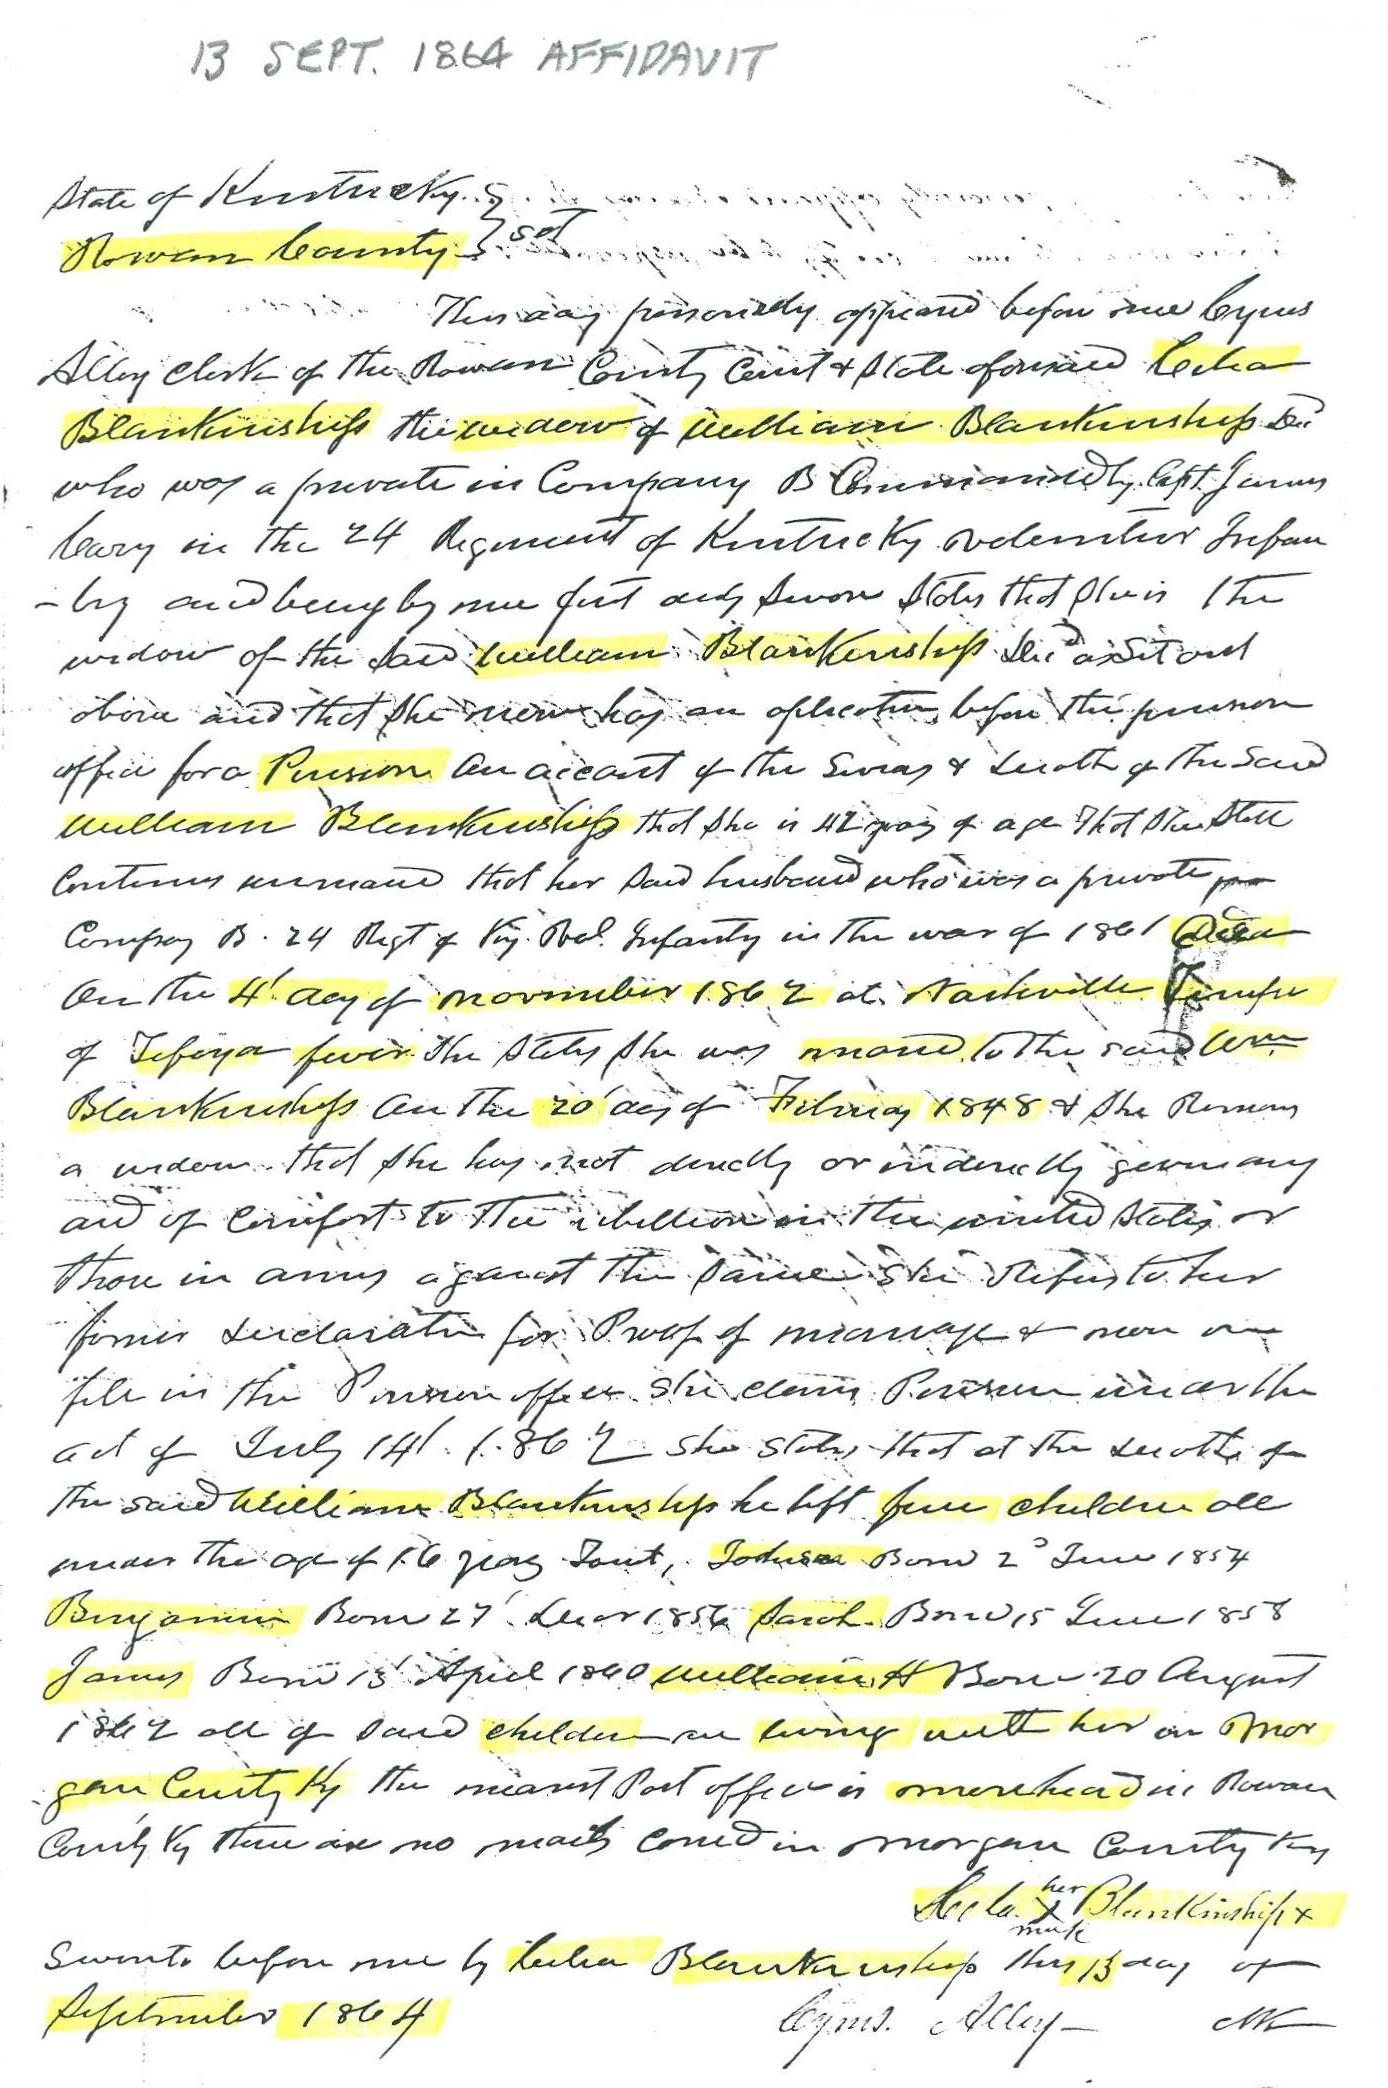 13 SEPT. 1864 AFFIDAVIT
State of Kentucky
Rowan County } sct
This day personally appeared before me Cyrus
Alley clerk of the Rowan County Court & State aforesaid Celia
Blankinship the widow of William Blankinship Decd
who was a private in Company B Commanded by Capt James
in the 24 Regiment of Kentucky volenteer Infan
-try and being by me first duly sworn States that she is the
widow of the said William Blankinship Decd as set out
above and that she now has an aplication before the pension
office for a Pension on account of the Service & death of the said
William Blankinship that she is 42 years of age that she still
Continues unmarried that her said husband who was a private
Company B. 24 Regt of Ky. Vol. Infantry in the war of 1861 Died
on the 4' day of November 1862 at Nashville
of fever She States she was maried to the said Wm
Blankinship on the 20' day of 1848 & she Remains
a widow. that she has not directly or indirectly given any
aid or comfort to the rebellion in the united States or
those in arms against the same She Refers to her
former declaration for Proof of marriage & now on
file in the Pension office She claims Pension under the
act of July 14' 1862 She States that at the death of
the said William Blankinship he left five children all
under the age of 16 years Born 2d June 1854
Benjamin Born 27' 1856 Sarah Born 15 June 1858
James Born April 1860 William H Born 20 August
1862 all of said children are living with her in Mor
gan County Ky the nearest Post office is morehead in Rowan
County Ky there are no mails in Morgan County Ky
her
Blankinship x
mark
Sworn to before me by Celia Blankinship this 13 day of
September 1864
Cyrus Alley Clk